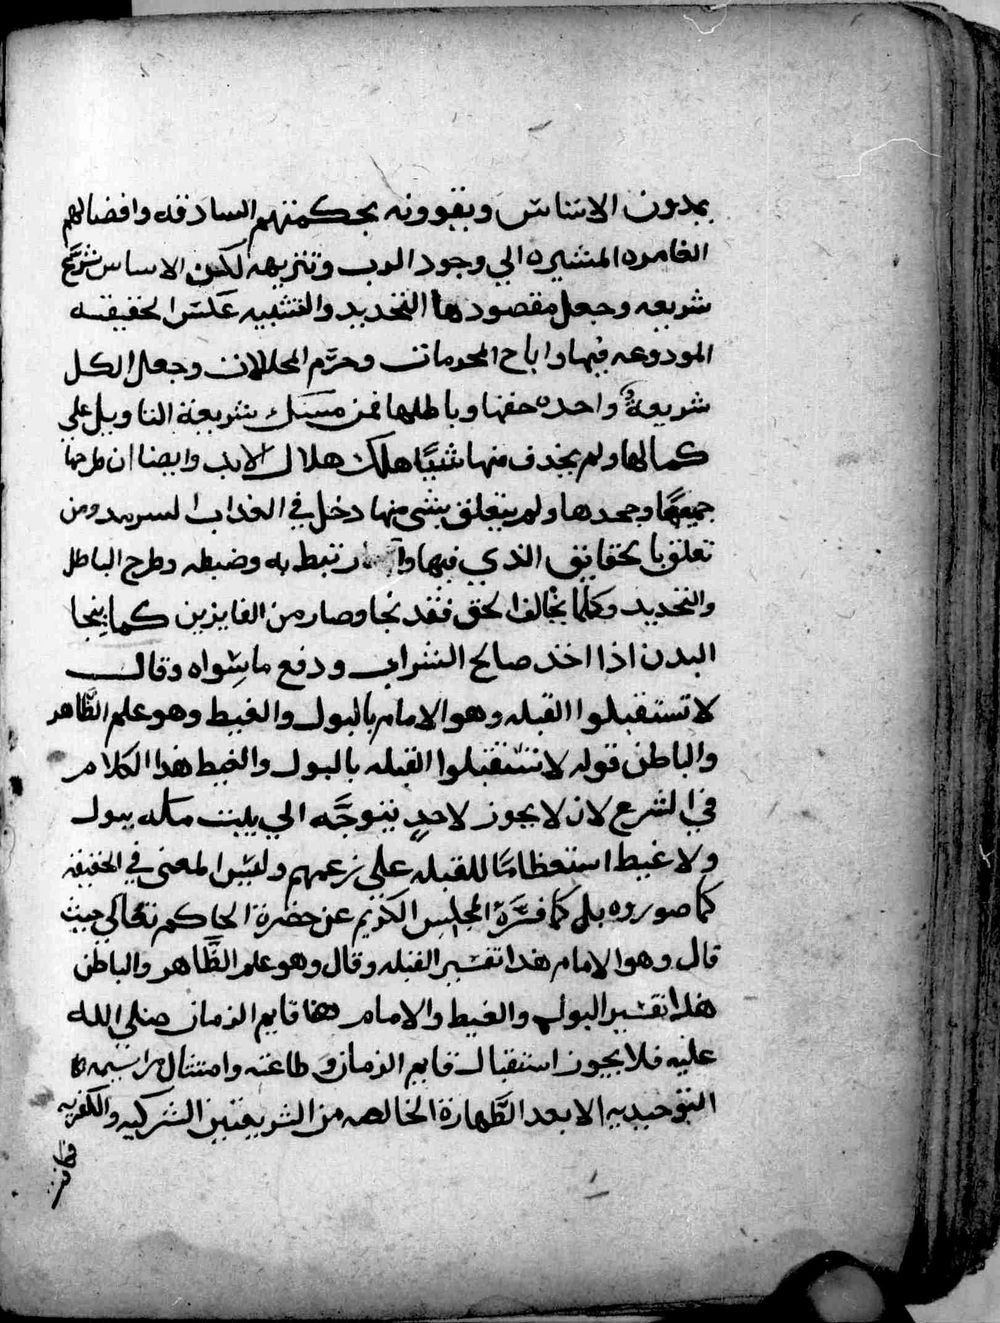 يمدون الاساس ويقوونه بحكمتهم الصادقه وافضالهم
الغامره المشيره الي وجود الرب وتنزيهه لكن الاساس شرع
شريعه وجعل مقصودها التحديد والتشبيه عكس الحقيقه
المودوعه فيها واباح المحرمات وحرَّم المحللات وجعل الكل
شريعة واحده حقها وباطلها فمن مسك بشريعة التاويل علي
كمالها ولم يحذف منها شيًا هلك هلاك الابد وايضا ان طرحها
جميعها وجحدها ولم يتعلق بشي منها دخل في العذاب السرمد ومن
تعلق بالحقايق الذي فيها وارتبط به وضبطه وطرح الباطل
والتحديد وكلما يخالف الحق فقد نجا وصار من الفايزين كما ينجا
البدن اذا اخذ صالح الشراب ودفع ما سواه وقال
لا تستقبلوا القبله وهو الامام بالبول والغيط وهو علم الظاهر
والباطن قوله لا تستقبلوا القبله بالبول والغيط هذا الكلام
في الشرع لان لا يجوز لاحدٍ يتوجَّه الي بيت مكه ببول
ولا غيط استعظامًا للقبله علي زعمهم وليس المعني في الحقيقه
كما صوروه بل كما فسَّرة المجلس الكريم عن حضرة الحاكم تعالي حيث
قال وهو الامام هذا تفسير القبله وقال وهو علم الظَّاهر والباطن
هذا تفسير البول والغيط والامام هنا قايم الزمان صلي الله
عليه فلا يجوز استقبال قايم الزمان و طاعته وامتثال مراسيمه
التوحيديه الا بعد الطَّهارة الخالصه من الشريعتين الشركيه والكفريه